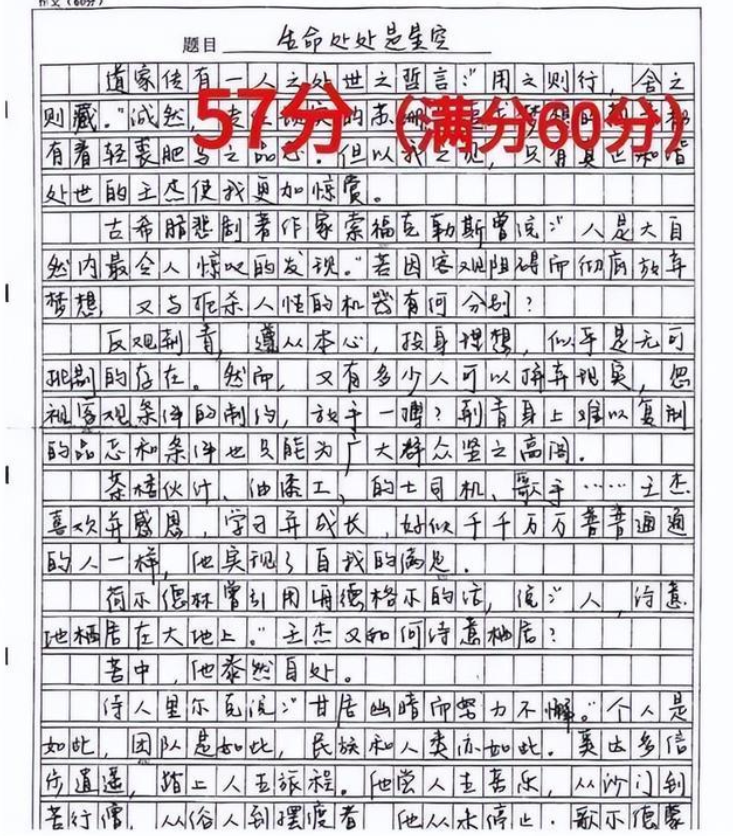 作文（60分）
题目 生命处处是星空
道家传有一人之处世之哲言：“用之则行，舍之
则藏。”诚然，
57分（满分60分）
有着轻裘肥马之品态。但以我之见，只有真正和谐
处世的王杰使我更加惊赏。
古希腊悲剧著作家索福克勒斯曾说：“人是大自
然内最令人惊叹的发现。”若因客观阻碍而彻底放弃
梦想，又与扼杀人性的机器有何分别？
反观荆青，遵从本心，投身理想，似乎是无可
挑剔的存在。然而，又有多少人可以摒弃现实，忽
视客观条件的制约，放手一搏？荆青身上难以复制
的品态和条件也只能为广大群众竖之高阁。
茶楼伙计、油漆工、的士司机、歌手……王杰
喜欢并感恩，学习并成长，好似千千万万普普通通
的人一样，他实现了自我的满足。
荷尔德林曾引用海德格尔的话，说：“人，诗意
地栖居在大地上。”王杰又如何诗意栖居？
苦中，他泰然自处。
诗人里尔克说：“甘居幽暗而努力不懈。”个人是
如此，团队是如此，民族和人类亦如此。奚达多信
步逍遥，踏上人生旅程。他尝人生喜乐，从沙门到
苦行僧，从俗人到摆渡者，他从未停止。歌尔德蒙